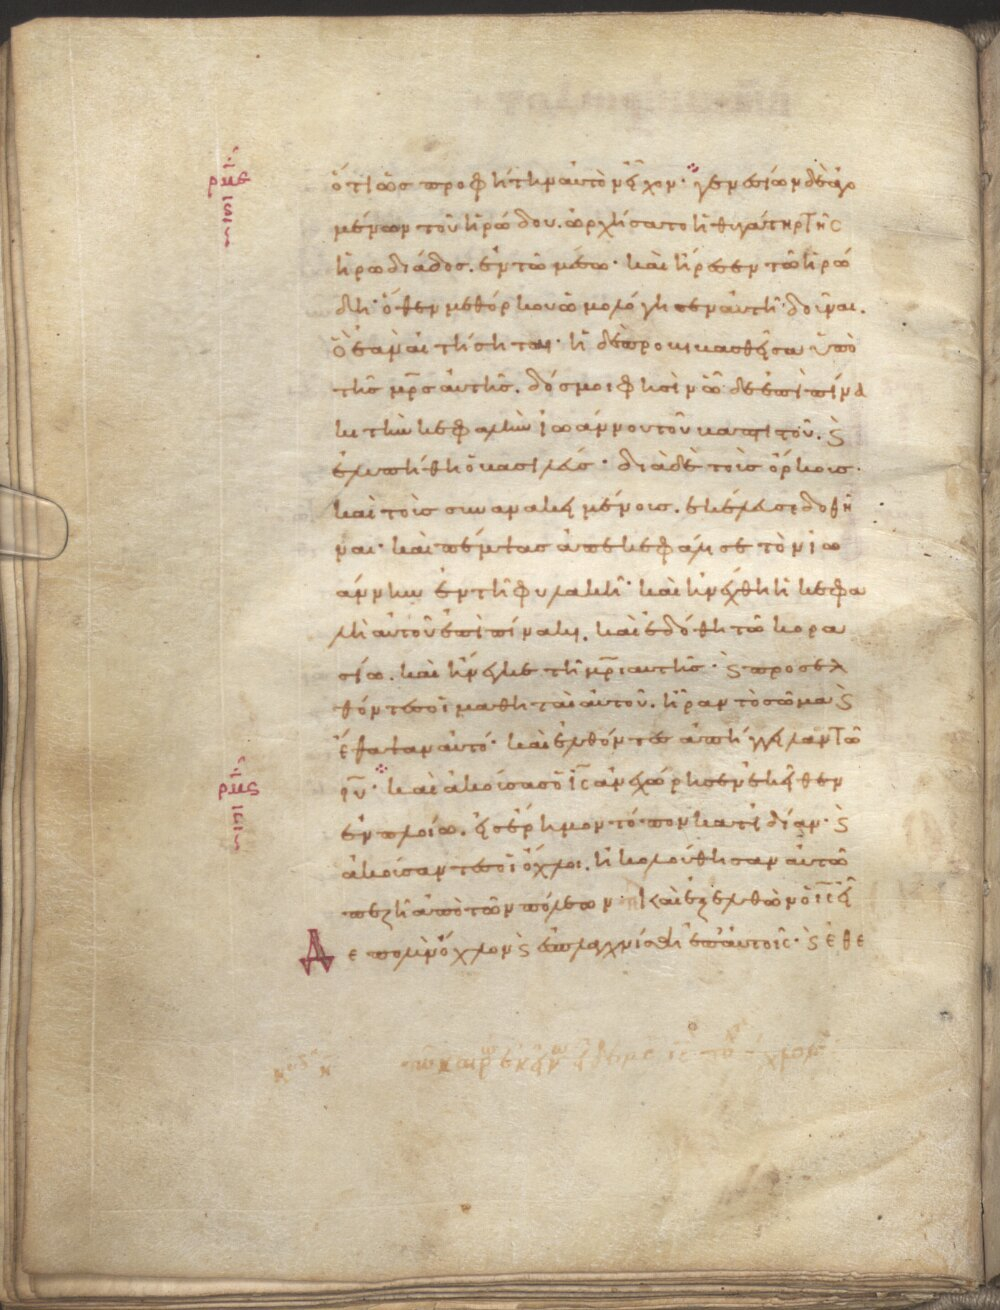 ρμε
ὅτι ὡς προφήτην αὐτὸν εἶχον· γενεσίων δὲ ἀγο
μένων τοῦ ἡρώδου. ὠρχήσατο ἡ θυγάτηρ τῆς
ἡρωδιάδος. ἐν τῶ μέσω· καὶ ἤρεσεν τῶ ἡρώ
δη· ὅθεν μεθ ὅρκου ὡμολόγησεν αὐτῆ· δοῦναι.
ὃ ἐὰν αἰτήσηται· ἡ δὲ προβιβασθεῖσα ὑπὸ
τῆς μρς αὐτῆς. δός μοι φησὶν ὧδε ἐπὶ πίνα
κι τὴν κεφαλὴν ἰωάννου τοῦ βαπτιστοῦ. ϗ
ἐλυπήθη ὁ βασιλεύς· διὰ δὲ τοὺς ὅρκους·
καὶ τοὺς συνανακειμένους. ἐκέλευσε δοθῆ
ναι· καὶ πέμψας ἀπεκεφάλισε τὸν ἰω
άννην ἐν τῆ φυλακῆ· καὶ ἠνέχθη ἡ κεφα
λὴ αὐτοῦ ἐπὶ πίνακι. καὶ ἐδόθη τῶ κορα
σίω. καὶ ἤνεγκε τῆ μρι αὐτῆς· ϗ προσελ
θόντες οἱ μαθηταὶ αὐτοῦ. ἦραν τὸ σῶμα ϗ
ἔθαψαν αὐτό· καὶ ἐλθόντες ἀπήγγειλαν τῶ
ρμς
ιυ· καὶ ἀκούσας ὁ ις ἀνεχώρησεν ἐκεῖθεν
ἐν πλοίω. εἰς ἔρημον τόπον κατ ιδίαν· ϗ
ἀκούσαντες οἱ ὄχλοι. ἠκολούθησαν αὐτῶ
πεζῆ ἀπὸ τῶν πόλεων· Καὶ ἐξελθὼν ὁ ις εἶ
Δε πολὺν ὄχλον ϗ ἐσπλαγχνίσθη ἐπ αὐτοῖς· ϗ ἐθε